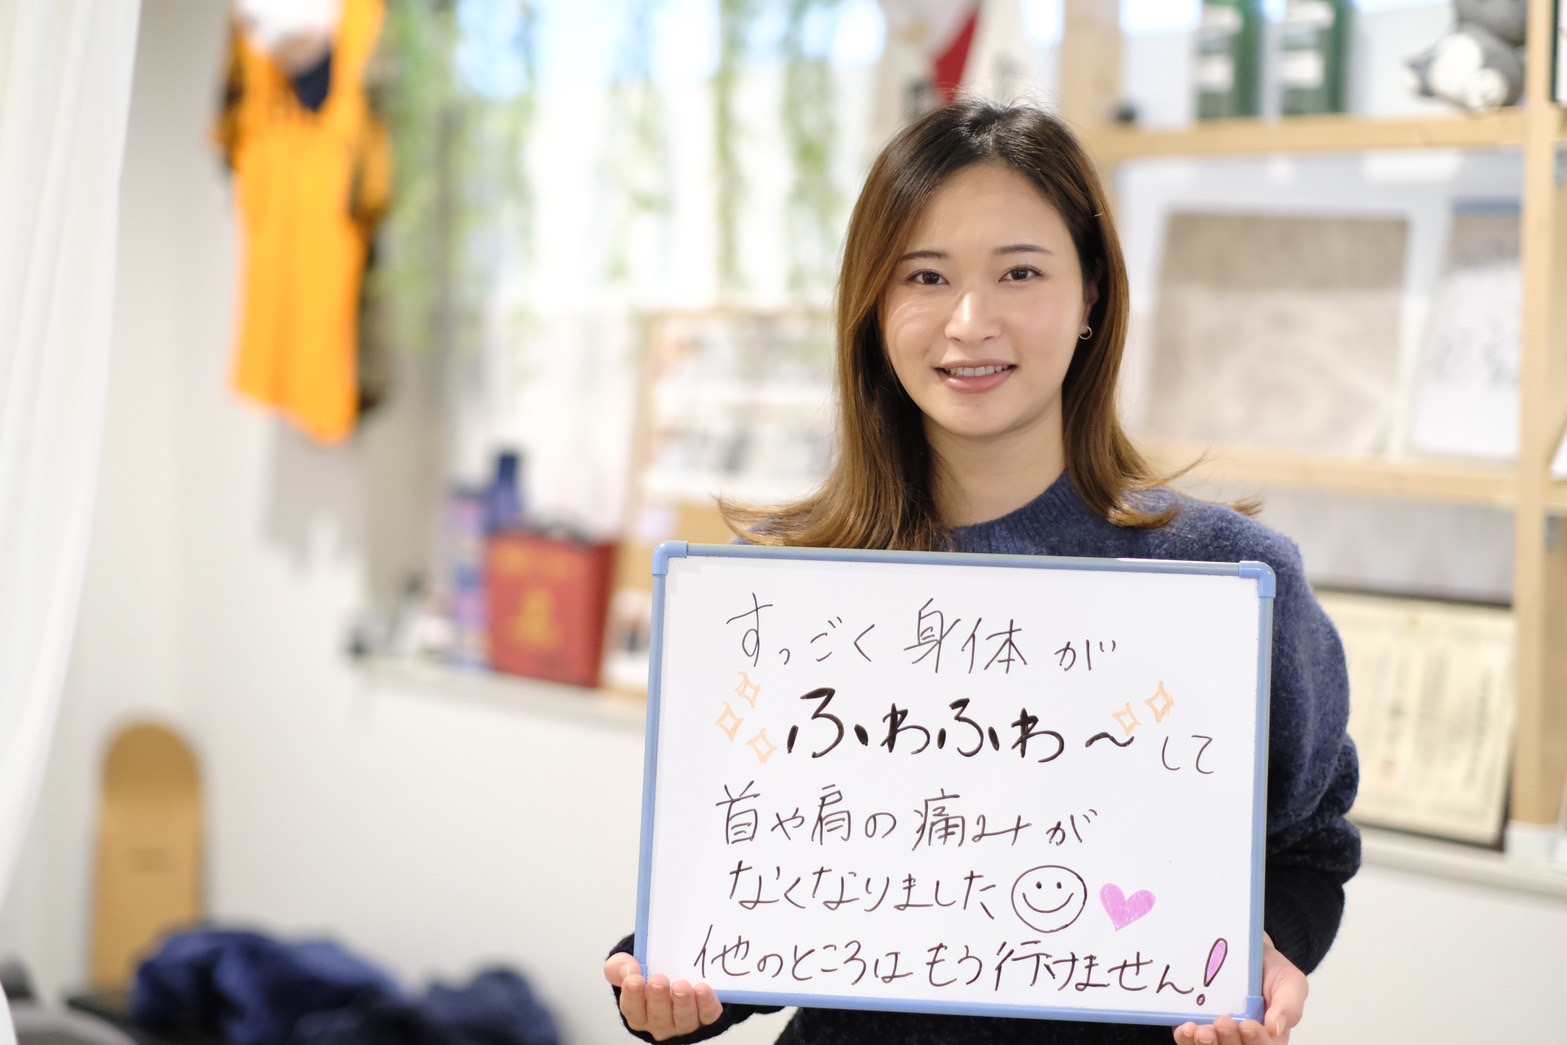 すっごく身体が
ふわふわ〜して
首や肩の痛みが
なくなりました
他のところはもう行けません!